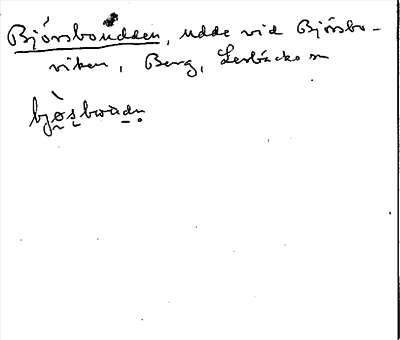 Björsboudden, udde vid Björsbo-
viken, Berg, Lerbäcks sn
bjò̤ṣbωùdṇ